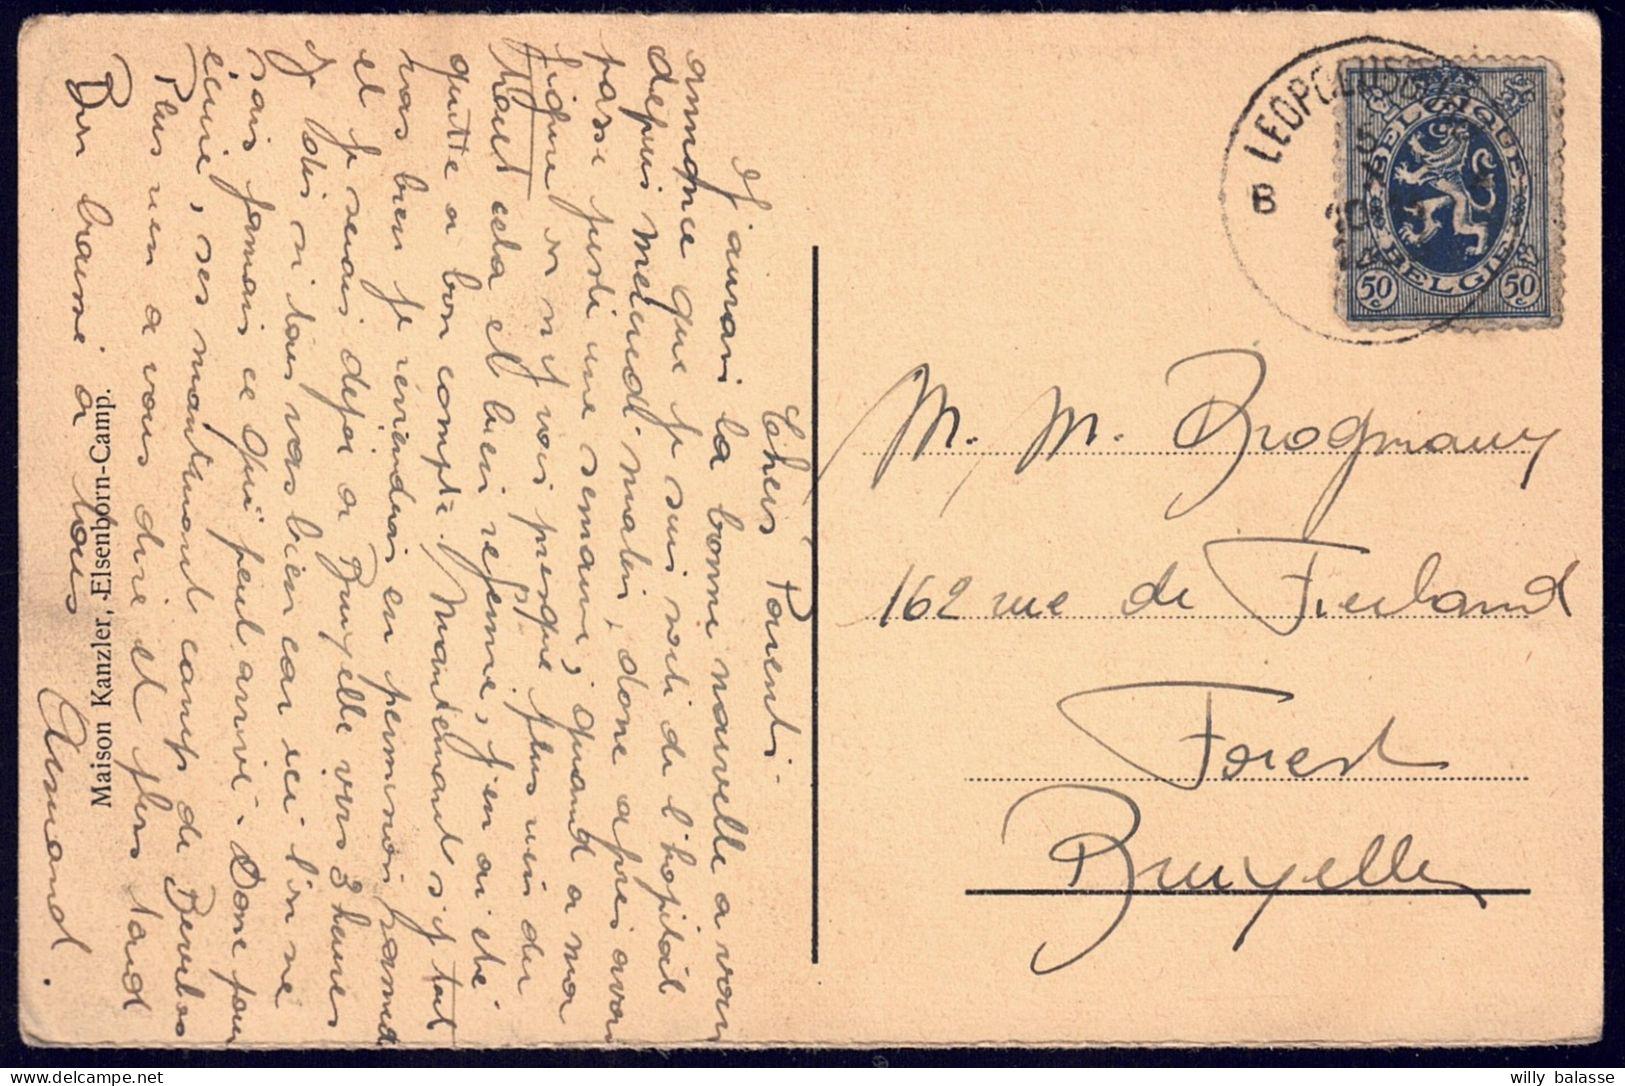 Chers Parents
J'aurai la bonne nouvelle a vous
annonce que je suis sorti de l'hopital
depuis mercredi matin, donc apres avoir
passe juste une semaine, quand a ma
figure on n'y vois presque plus rien du
tout cela et bien refermé, j'en ai été
quitte a bon compte. Maintenant s'y tout
vas bien je reviendrai en permission samedi
et je serais deja a Bruxelle vers 3 heures
Je dis si tous vas bien car ici l'on ne
sais jamais ce qui peut arrivé. Donc pour
écrire, ses maintenant camp de Beverloo
Plus rien a vous dire et plus tard
Bon baisé à tous
Armand.
Maison Kanzler, Elsenborn-Camp.
LEOPOLDSBURG
B
15
10
BELGIQUE
BELGIE
50 c
50 c
M. M. Brogmann
162 rue de
Forest
Bruxelles
willy balasse